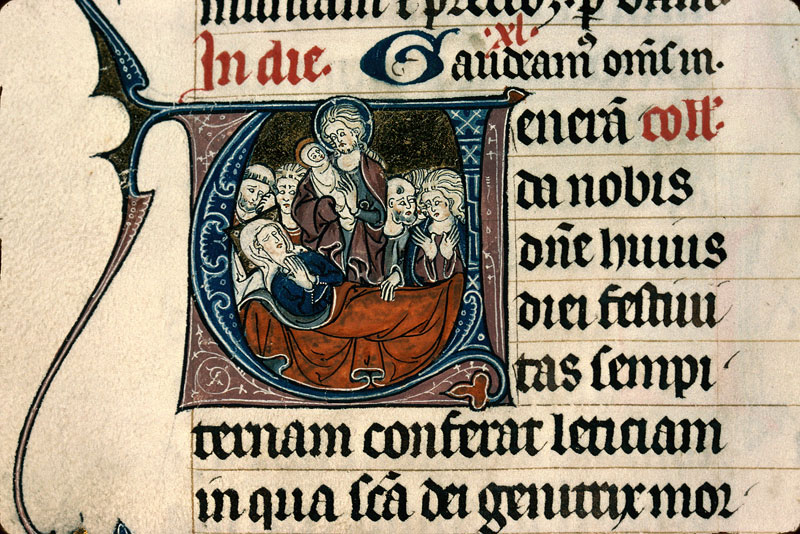 In die. Gaudeamꝰ om̄s in. xl.
Venerā coll̄.
da nobis
dn̄e huius
diei festiui
tas sempi
ternam conferat leticiam
in qua scā dei genitrix mor